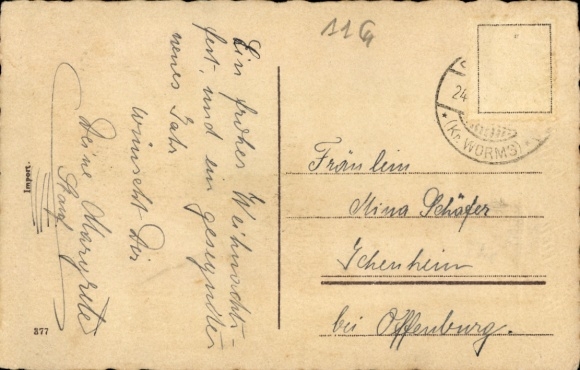 11 G
Ein frohes Weihnachts-
fest, und ein gesegnetes
neues Jahr
wünscht Dir
Deine Margrete
Import.
377
24
* (Kr. WORMS) *
Fräulein
Mina Schäfer
Ichenheim
bei Offenburg.